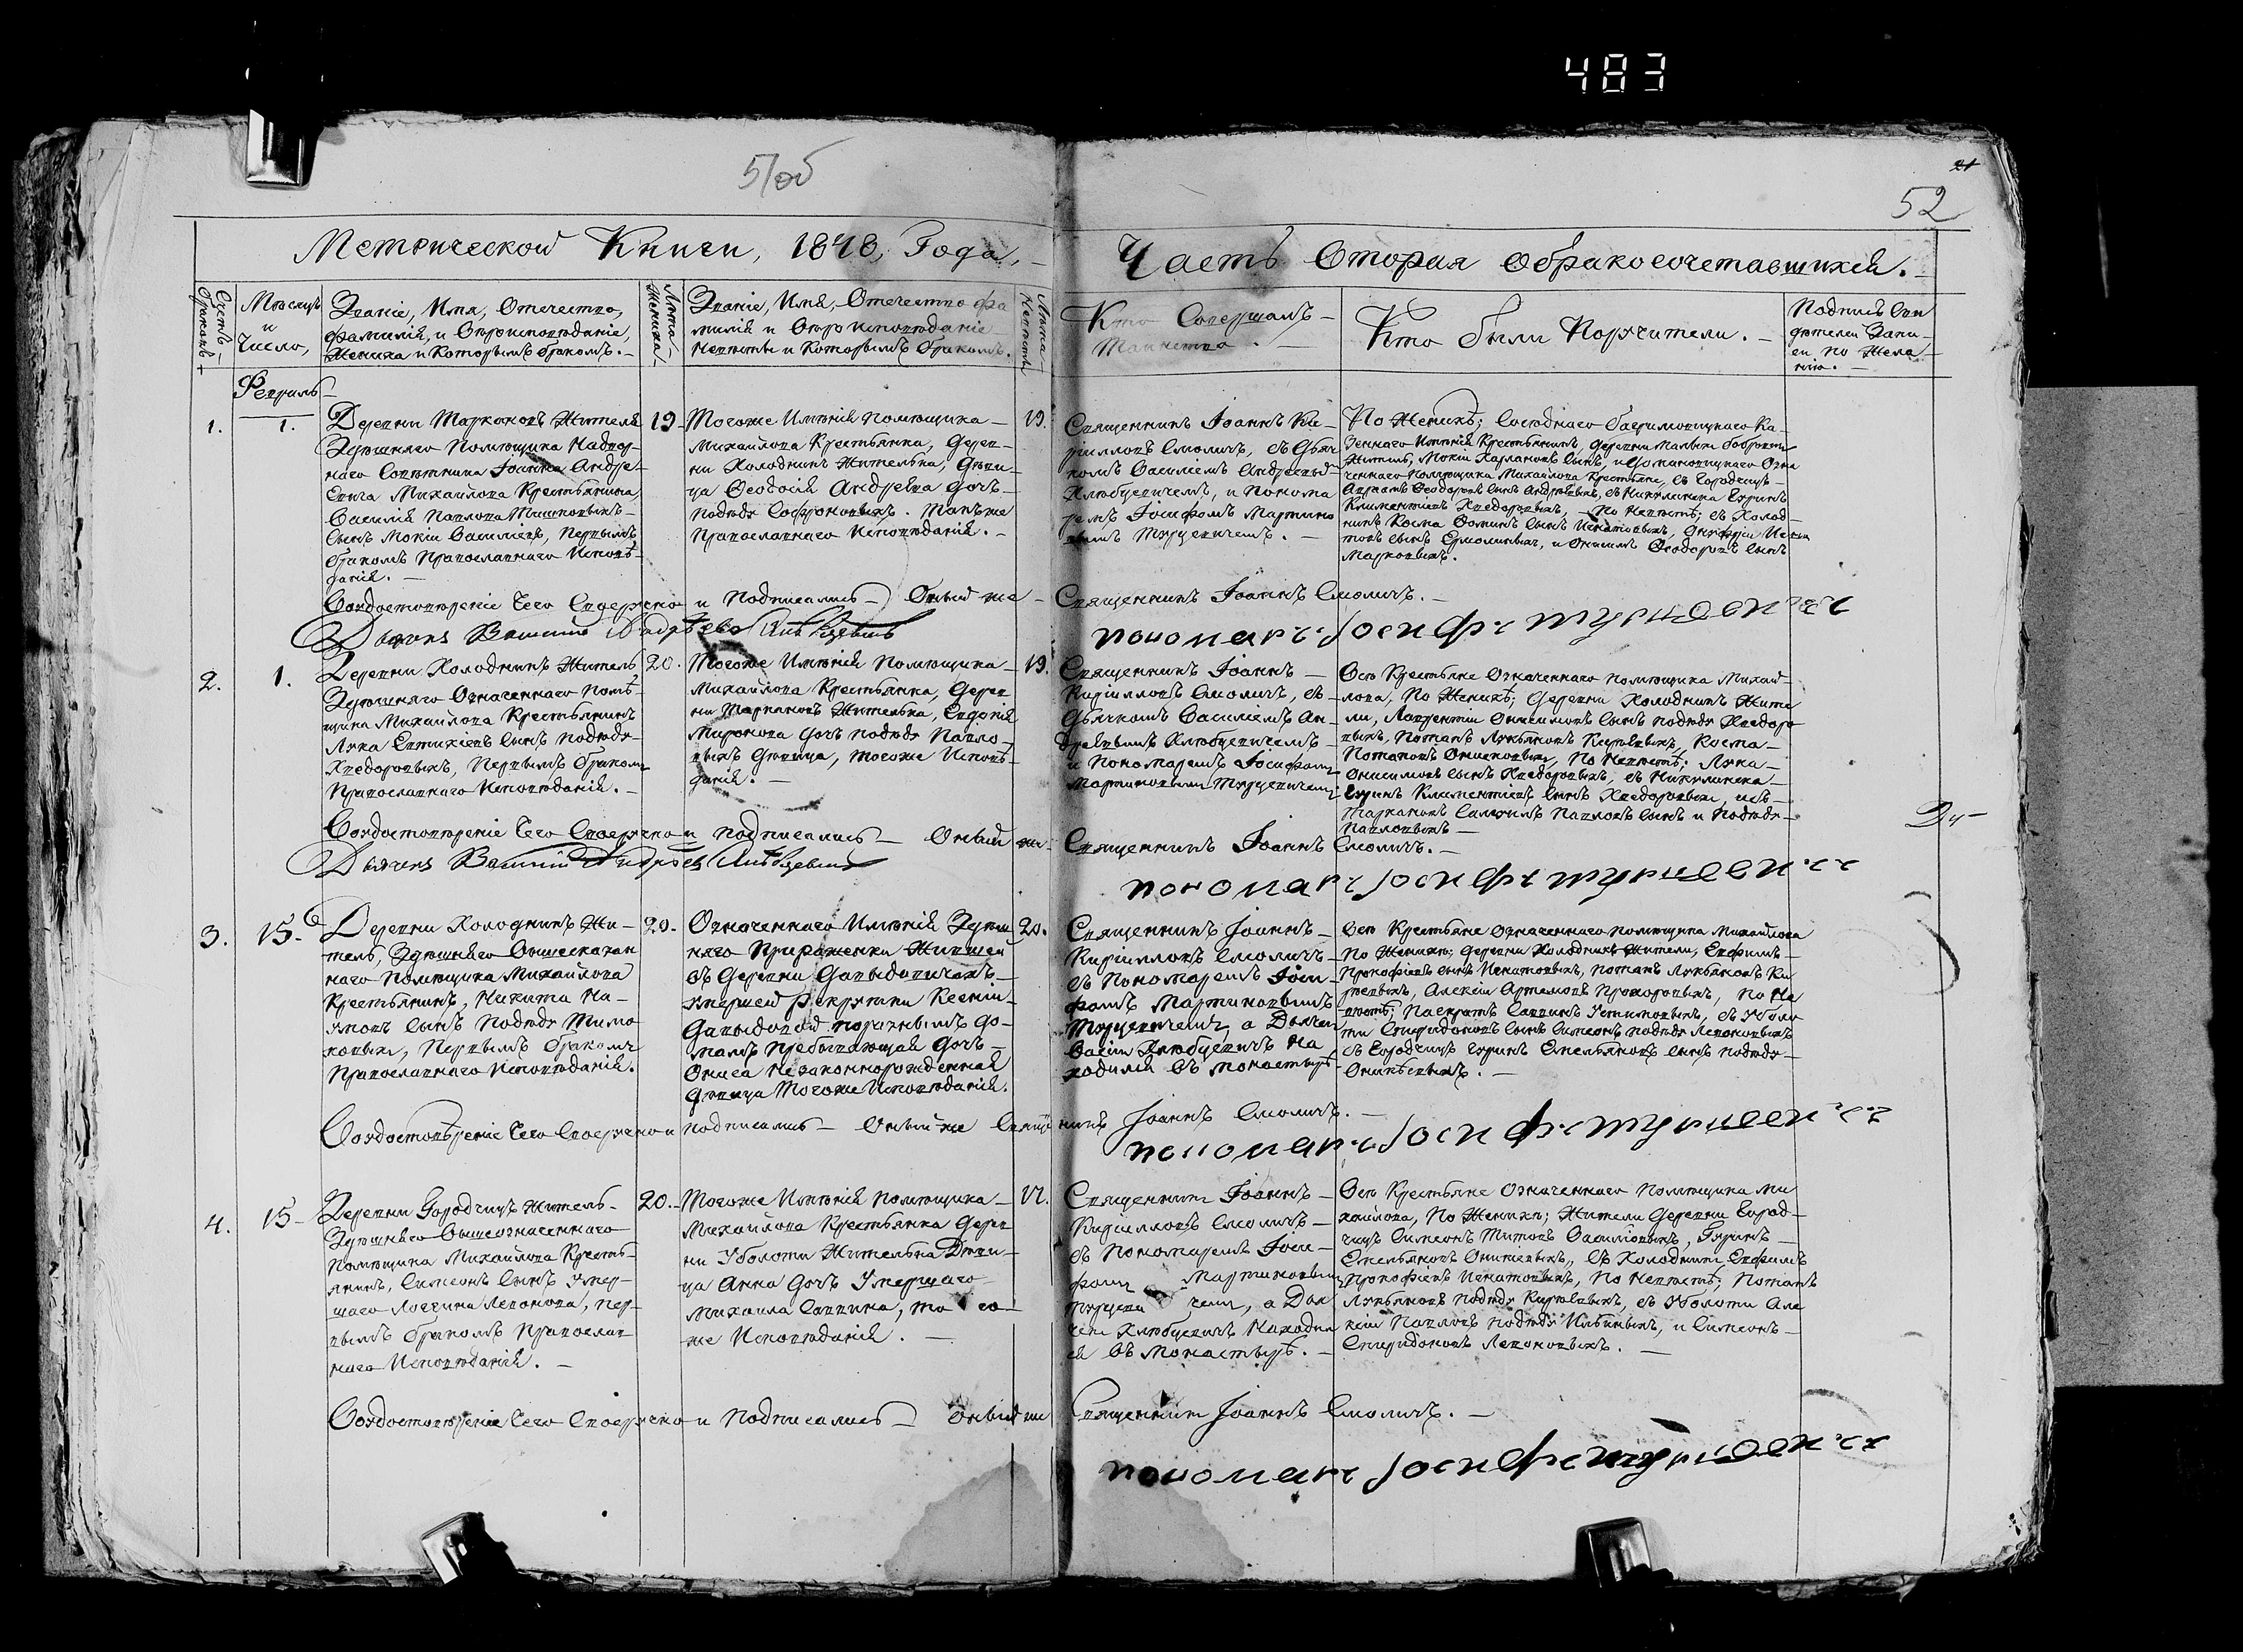 483
51об
21
52
Метрической Книги, 1848, Года,
Часть Вторая О бракосочетавшихся.
Счетъ браковъ
Мѣсяцъ
и
Число,
Званіе, Имя, Отечество,
фамилія, и Вѣроисповѣданіе,
Жениха и Которымъ бракомъ.
Лѣта Жениха
Званіе, Имя, Отечество фа
милія и Вѣро исповѣданіе
Невѣсты и Которымъ бракомъ.
Лѣта Невѣсты
Кто Совершалъ
Таинство.
Кто были Поручители.
Подпись Сви
дѣтелей Запи
си по Жела
нію.
Февраль
1.
1.
Деревни Таркановъ Жителя
Здѣшняго Помѣщика Надвор
наго Совѣтника Іоанна Андре
евича Михайлова Крестьянина
Василія Павлова
сынъ Мокій Васильевъ, Первымъ
бракомъ Православнаго Исповѣ
данія.
19
Тогоже Имѣнія Помѣщика
Михайлова Крестьянка, Дерев
ни Холодникъ Жителька, Дѣви
ца Ѳеодосія Андреева дочь
подъ Софроновыхъ. Такъже
Православнаго Исповѣданія.
19.
Священникъ Іоаннъ Ки
рилловъ Смоличъ, съ Дьяч
комъ Василіемъ Андреевы
Хлюбцевичемъ, и Понома
ремъ Іосифомъ Мартино
вымъ Турцевичемъ.
По Женихѣ; Сосѣдняго Ка
зеннаго Имѣнія Крестьянинъ, деревни Малыхъ
Житель, Мокій сынъ, и Озна
ченнаго Помѣщика Михайлова Крестьяне, съ Городчицъ
Ѳеодоровъ сынъ съ Никулинска Гуринъ
Климентіевъ Хведоровыхъ, По Невѣстѣ; съ Холод
никъ Косма Ѳоминъ сынъ Игнатовыхъ, Онуфрій
товъ сынъ Ермолиныхъ, и Онисимъ Ѳеодоровъ сынъ
Марковыхъ.
Во удостовѣреніе Чего Своеручно и подписались Оный же Священникъ Іоаннъ Смоличъ.
Дьячокъ Василій Андреевъ Хлюбцевичъ
пономарь Іосифъ Турцевичъ
2.
1.
Деревни Холодникъ Житель
Здѣшняго Означеннаго Помѣ
щика Михайлова Крестьянинъ
Лука Евтихіевъ сынъ подъ
Хведоровыхъ, Первымъ бракомъ
Православнаго Исповѣданія.
20.
Тогоже Имѣнія Помѣщика
Михайлова Крестьянка, Дерев
ни Таркановъ Жителька, Евдокія
Миронова дочь подъ Павло
выхъ Дѣвица, тогоже Исповѣ
данія.
19.
Священникъ Іоаннъ
Кирилловъ Смоличъ, съ
Дьячкомъ Василіемъ Ан
древымъ Хлюбцевичемъ
и Пономаремъ Іосифомъ
Мартиновымъ Турцевичемъ
Всѣ Крестьяне Означеннаго Помѣщика Михай
лова, По Женихѣ; Деревни Холодникъ Жите
ли, Лаврентій Онисимовъ сынъ подъ Хведоро
выхъ, Потапъ Лукьяновъ Кирѣевыхъ, Косма
Потаповъ По Невѣстѣ; Лука
Онисимовъ сынъ Хведоровыхъ, съ Никулинска
Гуринъ Климентіевъ сынъ Хведоровыхъ, изъ
Таркановъ Павловъ сынъ и подъ
Павловыхъ
Во удостовѣреніе Чего Своеручно и подписались Оный же Священникъ Іоаннъ Смоличъ.
Дьячокъ Василій Андреевъ Хлюбцевичъ
пономарь Іосифъ Турцевичъ
3.
15.
Деревни Холодникъ Жи
тель, Здѣшняго Вышесказан
наго Помѣщика Михайлова
Крестьянинъ, Никита На
умовъ сынъ подъ Тимо
новыхъ, Первымъ бракомъ
Православнаго Исповѣданія.
20.
Означеннаго Имѣнія Здѣш
няго Жившей
въ Деревни Давыдовичахъ
умершей рекрутки Ксеніи
Давыдовой по разнымъ до
мамъ пребывающая дочь
Ониса Незаконнорожденная
Дѣвица Тогоже Исповѣданія.
20.
Священникъ Іоаннъ
Кирилловъ Смоличъ
съ Пономаремъ Іоси
фомъ Мартиновымъ
Турцевичемъ, а Дьячекъ
Хлюбцевичъ На
ходился въ Монастырѣ
Всѣ Крестьяне Означеннаго Помѣщика Михайлова
По Женихѣ; Деревни Холодникъ Жители, Евфимъ
Прокофіевъ сынъ Игнатовыхъ, Потапъ Лукьяновъ Ки
рѣевыхъ, Алексій Артемовъ Прохоровыхъ, По Не
вѣстѣ; Панкратъ Саввинъ съ Уболо
ти Спиридоновъ сынъ Симеонъ подъ Леоновыхъ
съ Городчицъ Гуринъ Емельяновъ сынъ подъ
Во удостовѣреніе Чего Своеручно и подписались Оный же Священникъ Іоаннъ Смоличъ.
пономарь Іосифъ Турцевичъ
4.
15
Деревни Городчицъ Житель
Здѣшняго Вышеозначеннаго
Помѣщика Михайлова Кресть
янинъ, Симеонъ сынъ Умер
шаго Логгина Леонова, пер
вымъ бракомъ Православ
наго Исповѣданія.
20.
Тогоже Имѣнія Помѣщика
Михайлова Крестьянка Дерев
ни Уболоти Жителька Дѣви
ца Анна дочь Умершаго
Михаила Саввина, то го
же Исповѣданія.
Священникъ Іоаннъ
Кирилловъ Смоличъ
съ Пономаремъ Іоси
фомъ Мартиновымъ
Турцеви чемъ, а Дья
чекъ Хлюбцевичъ Находил
ся въ Монастырѣ.
Всѣ Крестьяне Означеннаго Помѣщика Ми
хайлова, По Женихѣ; Жители Деревни Город
чицъ Симеонъ Титовъ Гуринъ
Емельяновъ съ Холодникъ Евфимъ
Прокофіевъ Игнатовыхъ, По Невѣстѣ; Потапъ
Лукьяновъ подъ Кирѣевыхъ, съ Уболоти Але
ксій Павловъ подъ Ильиныхъ, и Симеонъ
Спиридоновъ Леоновыхъ.
Во удостовѣреніе Чего Своеручно и подписались Оный же Священникъ Іоаннъ Смоличъ.
пономарь Іосифъ Турцевичъ